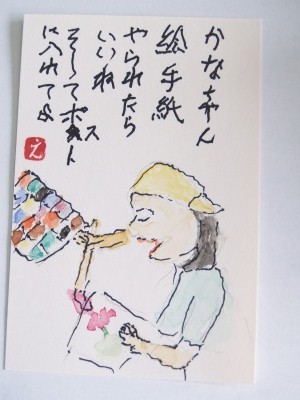 かなちゃん
絵手紙
やられたら
いいね
そしてポスト
に入れてよ
え